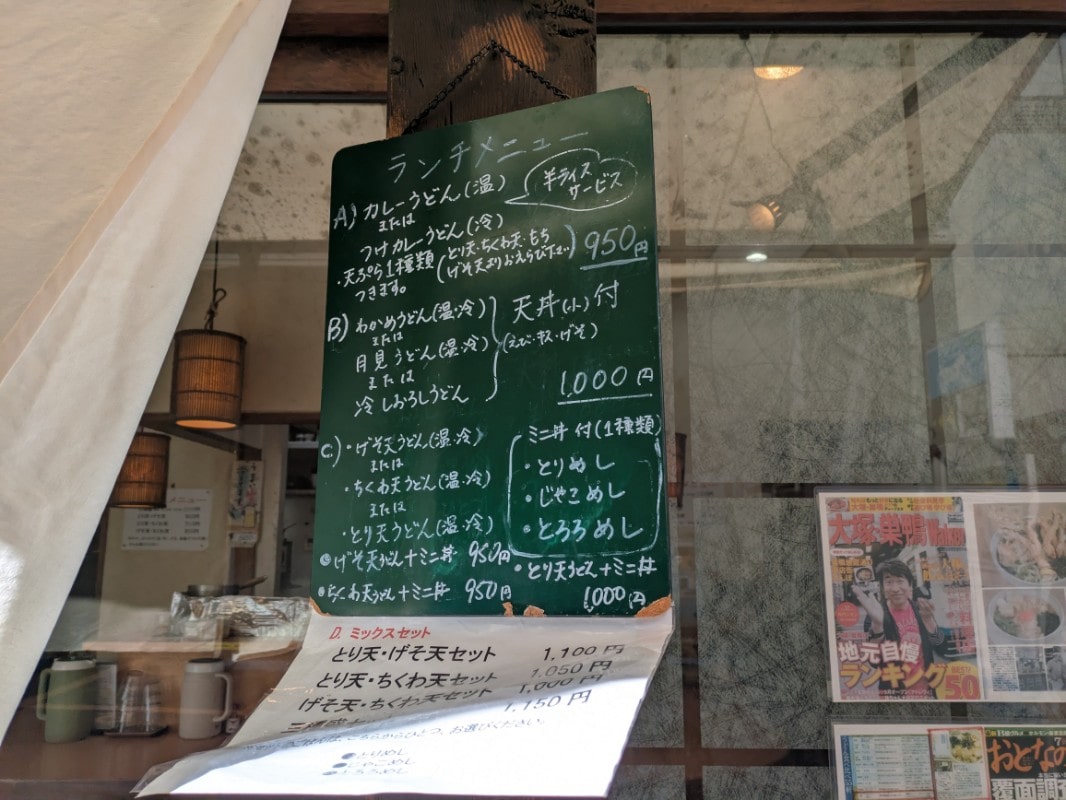 ランチメニュー
A) カレーうどん(温)
または
つけカレーうどん(冷)
半ライス
サービス
・天ぷら1種類
つきます。
(とり天・ちくわ天・もち
げそ天よりおえらび下さい)
950円
B) わかめうどん(温・冷)
または
月見うどん(温・冷)
または
冷しおろしうどん
天丼(小)付
(えび・キス・げそ)
1,000円
C.) ・げそ天うどん(温・冷)
または
・ちくわ天うどん(温・冷)
・とり天うどん(温・冷)
ミニ丼付(1種類)
・とりめし
・じゃこめし
・とろろめし
げそ天うどん+ミニ丼 950円
ちくわ天うどん+ミニ丼 950円
・とり天うどん+ミニ丼
1,000円
D. ミックスセット
とり天・げそ天セット 1,100円
とり天・ちくわ天セット 1,050円
げそ天・ちくわ天セット 1,000円
1,150円
お選びください。
●とりめし
●じゃこめし
●とろろめし
メニュー
大塚・巣鴨Walker
地元自慢
ランキング
50
おとなの
覆面調